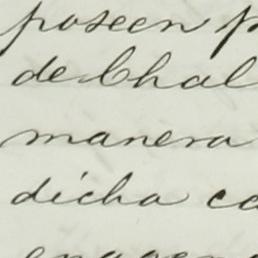 poseen p
de Chal
manera
dicha ca